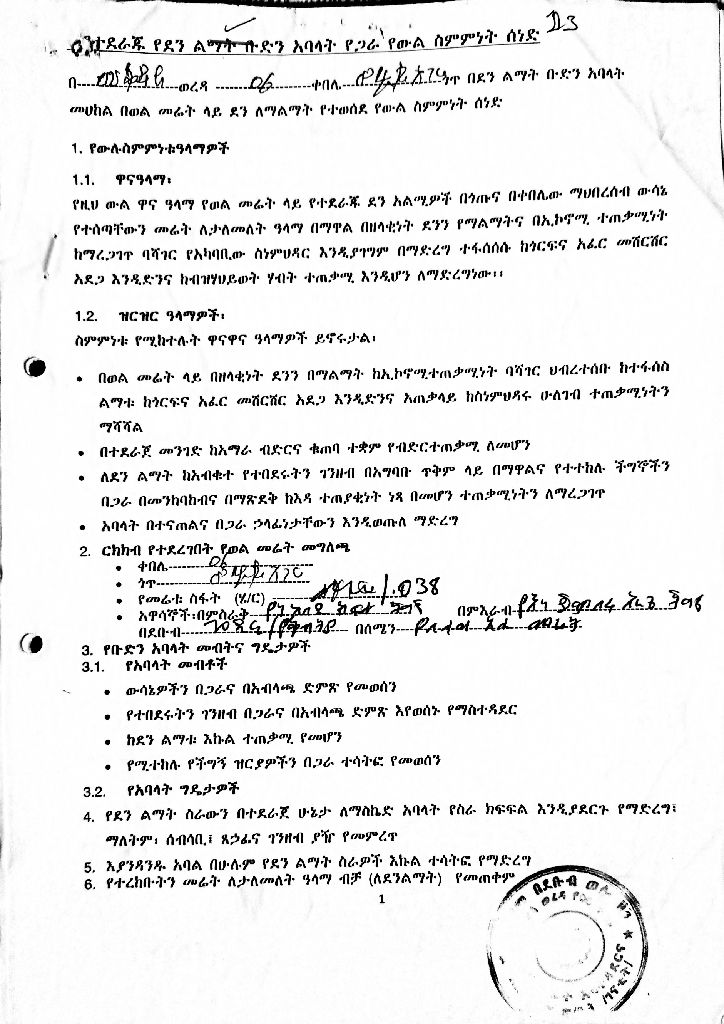 D3
የተደራጁ የደን ልማት ቡድን አባላት የጋራ የውል ስምምነት ሰነድ
በ ወረዳ 06 ቀበሌ ጎጥ በደን ልማት ቡድን አባላት
መሀከል በወል መሬት ላይ ደን ለማልማት የተወሰደ የውል ስምምነት ሰነድ
1. የውሉስምምነቱዓላማዎች
1.1. ዋናዓላማ፡
የዚህ ውል ዋና ዓላማ የወል መሬት ላይ የተደራጁ ደን አልሚዎች በጎጡና በቀበሌው ማህበረሰብ ውሳኔ
የተሰጣቸውን መሬት ለታለመለት ዓላማ በማዋል በዘላቂነት ደንን የማልማትና በኢኮኖሚ ተጠቃሚነት
ከማረጋገጥ ባሻገር የአካባቢው ስነምህዳር እንዲያገግም በማድረግ ተፋሰሰሱ ከጎርፍና አፈር መሸርሸር
አደጋ እንዲድንና ከብዝሃህይወት ሃብት ተጠቃሚ እንዲሆን ለማድረግነው፡፡
1.2. ዝርዝር ዓላማዎች፡
ስምምነቱ የሚከተሉት ዋናዋና ዓላማዎች ይኖሩታል፡
• በወል መሬት ላይ በዘላቂነት ደንን በማልማት ከኢኮኖሚተጠቃሚነት ባሻገር ህብረተሰቡ ከተፋሰስ
ልማቱ ከጎርፍና አፈር መሸርሸር አደጋ እንዲድንና አጠቃላይ ከስነምህዳሩ ሁለገብ ተጠቃሚነትን
ማሻሻል
• በተደራጀ መንገድ ከአማራ ብድርና ቁጠባ ተቋም የብድርተጠቃሚ ለመሆን
• ለደን ልማት ከአብቁተ የተበደሩትን ገንዘብ በአግባቡ ጥቅም ላይ በማዋልና የተተከሉ ችግኞችን
በጋራ በመንከባከብና በማጽደቅ ከእዳ ተጠያቂነት ነጻ በመሆን ተጠቃሚነትን ለማረጋገጥ
• አባላት በተናጠልና በጋራ ኃላፊነታቸውን እንዲወጡ ማድረግ
2. ርክክብ የተደረገበት የወል መሬት መግለጫ
• ቀበሌ 06
• ጎጥ
• የመሬቱ ስፋት (ሄ/ር) 1.038
• አዋሳኞች፡በምስራቅ በምእራብ
በደቡብ በሰሜን
3. የቡድን አባላት መብትና ግዴታዎች
3.1. የአባላት መብቶች
• ውሳኔዎችን በጋራና በአብላጫ ድምጽ የመወሰን
• የተበደሩትን ገንዘብ በጋራና በአብላጫ ድምጽ እየወሰኑ የማስተዳደር
• ከደን ልማቱ እኩል ተጠቃሚ የመሆን
• የሚተከሉ የችግኝ ዝርያዎችን በጋራ ተሳትፎ የመወሰን
3.2. የአባላት ግዴታዎች
4. የደን ልማት ስራውን በተደራጀ ሁኔታ ለማስኬድ አባላት የስራ ክፍፍል እንዲያደርጉ የማድረግ፤
ማለትም፡ ሰብሳቢ፤ ጸኃፊና ገንዘብ ያዥ የመምረጥ
5. እያንዳንዱ አባል በሁሉም የደን ልማት ስራዎች እኩል ተሳትፎ የማድረግ
6. የተረከቡትን መሬት ለታለመለት ዓላማ ብቻ (ለደንልማት) የመጠቀም
1
በደቡብ ወሎ ዞን